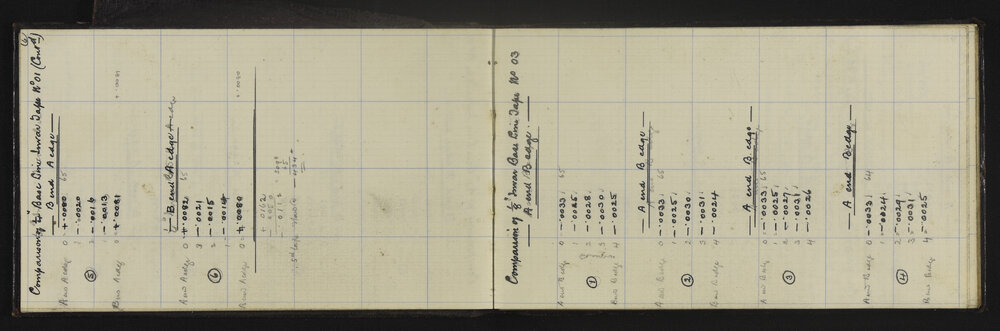 Comparison of ⅛" Base Line Invar Tape No 01 (Contd)
B end A edge
A end A edge
0 +.0080 65
1 -.0020
2 -.0016
3 -.0013
5
B end A edge
0 +.0081
+.0081
B end A edge
A end A edge
0 +.0082 65
3 -.0021
2 -.0015
1 -.0014
6
B end A edge
0 +.0080
+.0080
Comparison of ⅛" Invar Base Line Tape No 03
A end B edge
A end B edge
0 -.0033 65
1 -.0025
2 -.0028
3 -.0030
4 -.0025
1
B end B edge
A end B edge
A end B edge
0 -.0033 65
1 -.0025
2 -.0030
3 -.0031
4 -.0024
2
B end B edge
A end B edge
A end B edge
0 -.0033 65
1 -.0025
2 -.0027
3 -.0031
4 -.0026
3
A end B edge
A end B edge
0 -.0033 64
1 -.0024
2 -.0029
3 -.0031
4 -.0025
4
B end B edge